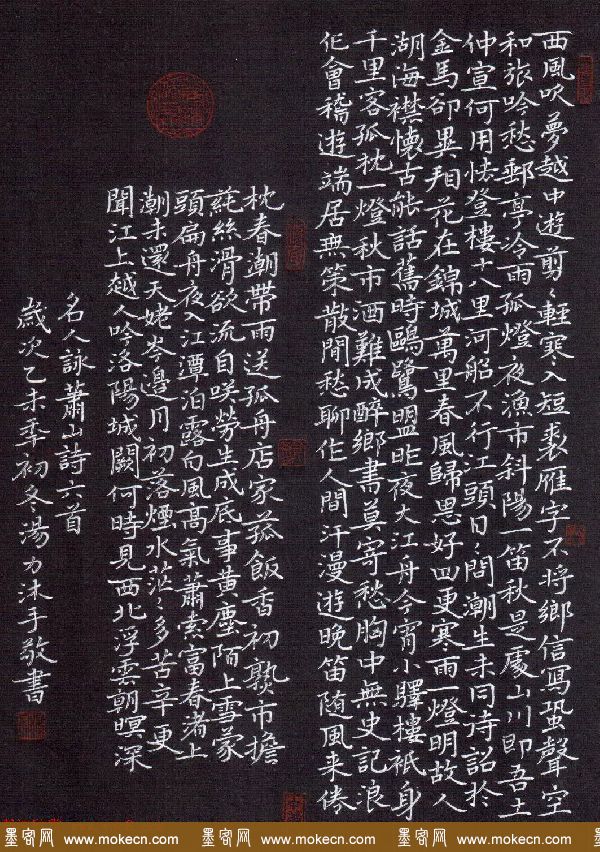 西風吹夢越中遊剪々輕寒入短裘雁字不將鄉信寫蛩聲空
和旅吟愁郵亭冷雨孤燈夜漁市斜陽一笛秋是處山川即吾土
仲宣何用怯登樓十八里河船不行江頭日々問潮生未同詩詔於
金馬卻異相花在錦城萬里春風歸思好四更寒雨一燈明故人
湖海襟懷古能話舊時鷗鷺盟昨夜大江舟今宵小驛樓祇身
千里客孤枕一燈秋市酒難成醉鄉書莫寄愁胸中無史記浪
作會稽遊端居無策散閒愁聊作人間汗漫遊晚笛随風来倦
枕春潮帶雨送孤舟店家菰飯香初熟市擔
蓴絲滑欲流自咲勞生成底事黄塵陌上雪蒙
頭扁舟夜入江潭泊露白風髙氣蕭索富春渚上
潮未還天姥岑邊月初落煙水茫々多苦辛更
聞江上越人吟洛陽城闕何時見西北浮雲朝暝深
名人詠蕭山詩六首
歲次乙未年初冬湯力沐手敬書
墨客网 www.mokecn.com 墨客网 www.mokecn.com 墨客网 www.mokecn.com